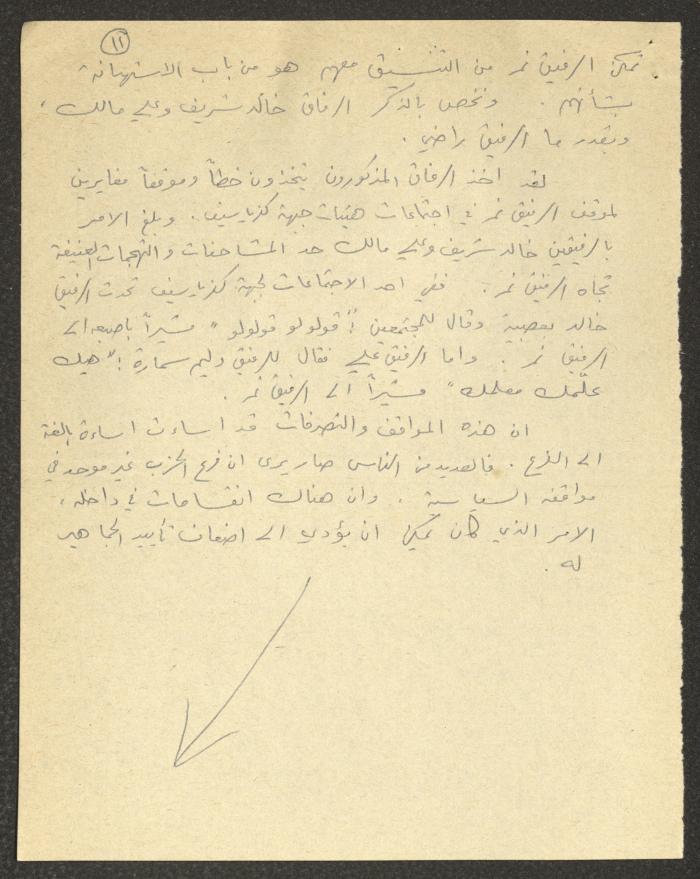 ١١
تمكن الرفيق نمر من التنسيق معهم هو من باب الاستهانة
بشأنهم. ونخص بالذكر الرفاق خالد شريف وعلي مالك،
وبقدر ما الرفيق راضي.
لقد اخذ الرفاق المذكورون يتخذون خطاً وموقفاً مغايرين
لموقف الرفيق نمر في اجتماعات هيئات جبهة كفرياسيف. وبلغ الامر
بالرفيقين خالد شريف وعلي مالك حد المشاحنات والتهجمات العنيفة
تجاه الرفيق نمر. ففي احد الاجتماعات لجبهة كفرياسيف تحدث الرفيق
خالد بعصبية وقال للمجتمعين: "قولولو قولولو" مشيراً باصبعه الى
الرفيق نمر. واما الرفيق علي فقال للرفيق وليم سمارة: "هيك
علّمك معلمك" مشيراً الى الرفيق نمر.
ان هذه المواقف والتصرفات قد اساءت اساءة بالغة
الى الفرع. فالعديد من الناس صار يرى ان فرع الحزب غير موحد في
مواقفه السياسية. وان هناك انقسامات في داخله،
الامر الذي كان يمكن ان يؤدي الى اضعاف تأييد الجماهير
له.